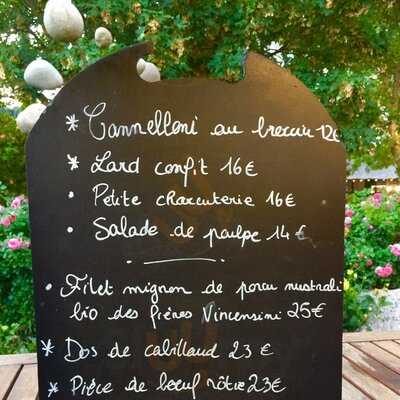 * Cannelloni au brocciu 12€
* Lard confit 16€
• Petite charcuterie 16€
• Salade de poulpe 14€
• Filet mignon de porcu nustrali
bio des frères Vincensini 25€
* Dos de cabillaud 23€
* Pièce de bœuf rôtie 23€